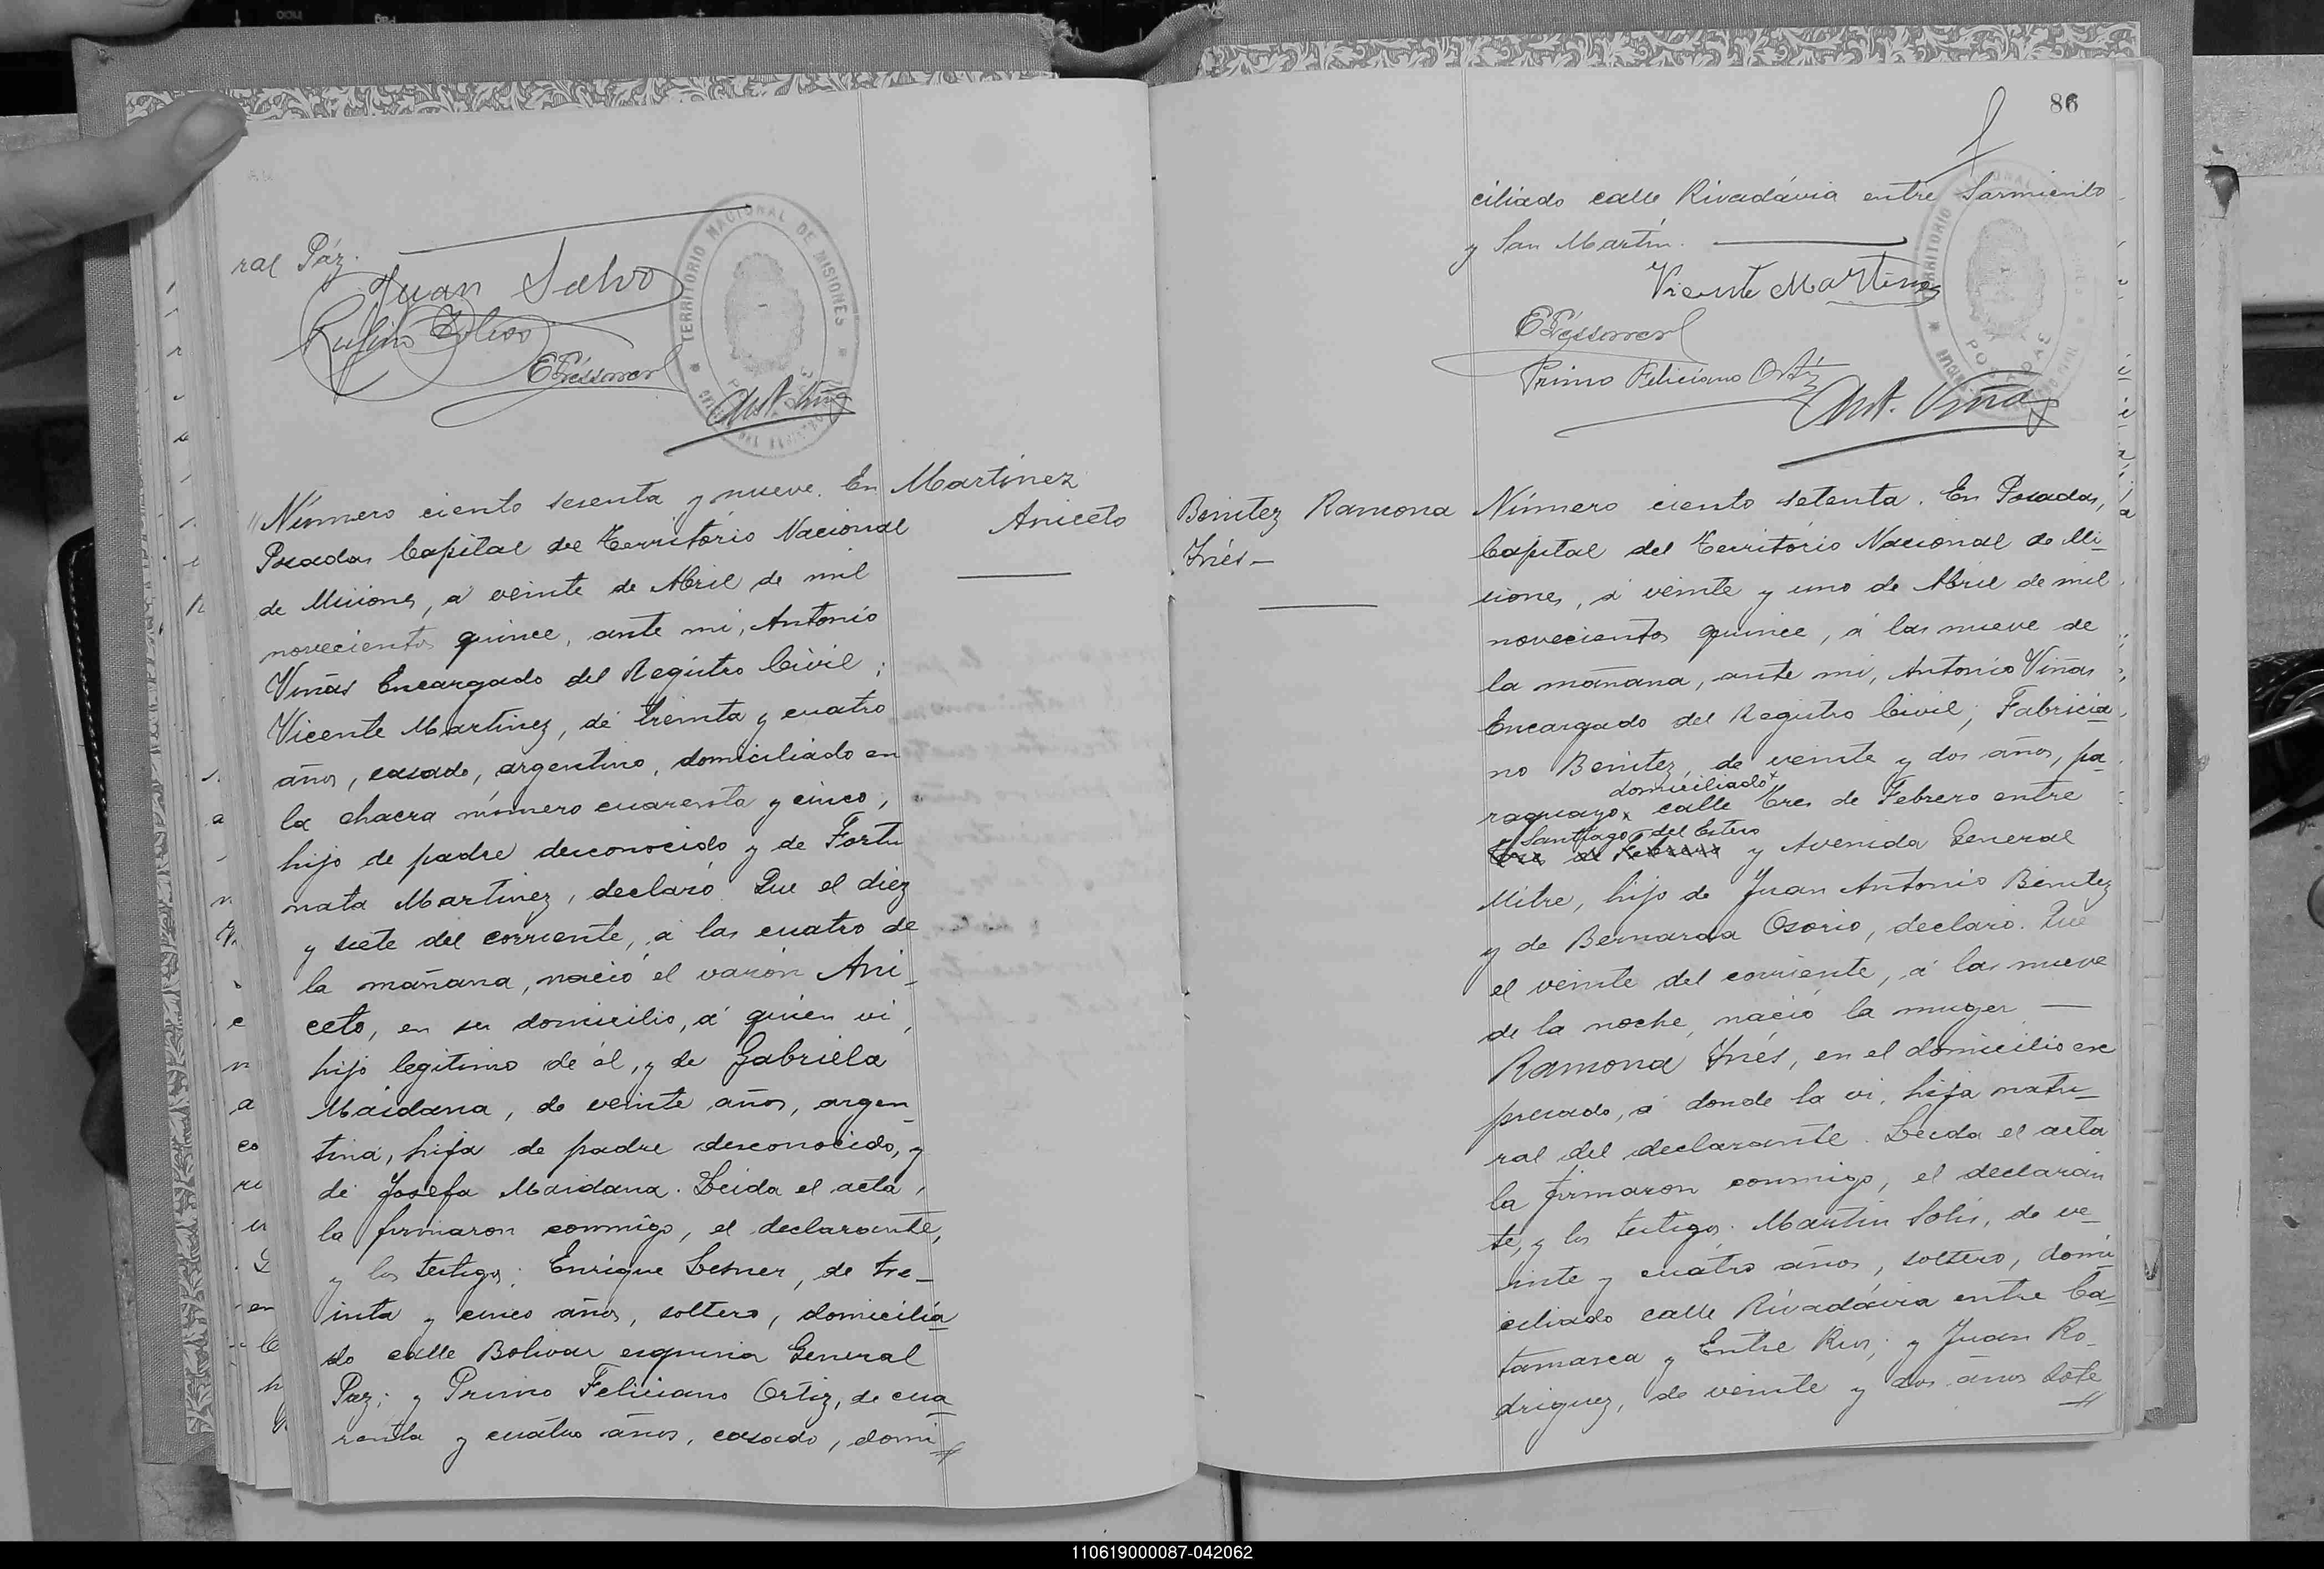 ral Páz.
Juan Salvo
TERRITORIO NACIONAL DE MISIONES
Número ciento sesenta y nueve. En
Posadas Capital del Territorio Nacional
de Misiones, a veinte de Abril de mil
novecientos quince, ante mi, Antonio
Viñas Encargado del Registro Civil;
Vicente Martinez, de treinta y cuatro
años, casado, argentino, domiciliado en
la chacra número cuarenta y cinco,
hijo de padre desconocido y de Fortu
nata Martinez, declaró. Que el diez
y siete del corriente, á las cuatro de
la mañana, nació el varón Ani-
ceto, en su domicilio, á quien vi,
hijo legitimo de él, y de Gabriela
Maidana, de veinte años, argen-
tina, hija de padre desconocido, y
de Josefa Maidana. Leida el acta,
la firmaron conmigo, el declarante,
y los testigos: Enrique Lesner, de tre-
inta y cinco años, soltero, domicilia
do calle Bolivar esquina General
Paz; y Primo Feliciano Ortiz, de cua
renta y cuatro años, casado, domi
Martinez
Aniceto
86
ciliado calle Rivadávia entre Sarmiento
y San Martin.
Vicente Martinez
Primo Feliciano Ortiz
Ant. Viñas
Benitez Ramona
Inés-
Número ciento setenta. En Posadas,
Capital del Territorio Nacional de Mi-
siones, á veinte y uno de Abril de mil
novecientos quince, á las nueve de
la mañana, ante mi, Antonio Viñas
Encargado del Registro Civil; Fabricia-
no Benitez, de veinte y dos años, pa
domiciliado
raguayo, calle Tres de Febrero entre
Santiago del Estero
Tres de Febrero y Avenida General
Mitre, hijo de Juan Antonio Benitez
y de Bernarda Osorio, declaró. Que
el veinte del corriente, á las nueve
de la noche, nació la muger
Ramona Inés, en el domicilio ex
presado, á donde la vi, hija natu-
ral del declarante. Leida el acta
la firmaron conmigo, el declaran
te, y los testigos: Martin Solis, de ve-
inte y cuatro años, soltero, domi
ciliado calle Rivadávia entre Ca-
tamarca y Entre Rios; y Juan Ro-
driguez, de veinte y dos años solte
110619000087-042062